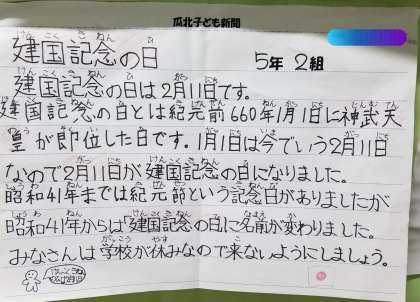 瓜北子ども新聞
建国記念の日
5年 2組
建国記念の日は2月11日です。
建国記念の日とは紀元前660年1月1日に神武天
皇が即位した日です。1月1日は今でいう2月11日
なので2月11日が建国記念の日になりました。
昭和41年までは紀元節という記念日がありましたが
昭和41年からは「建国記念の日」に名前が変わりました。
みなさんは学校が休みなので来ないようにしましょう。